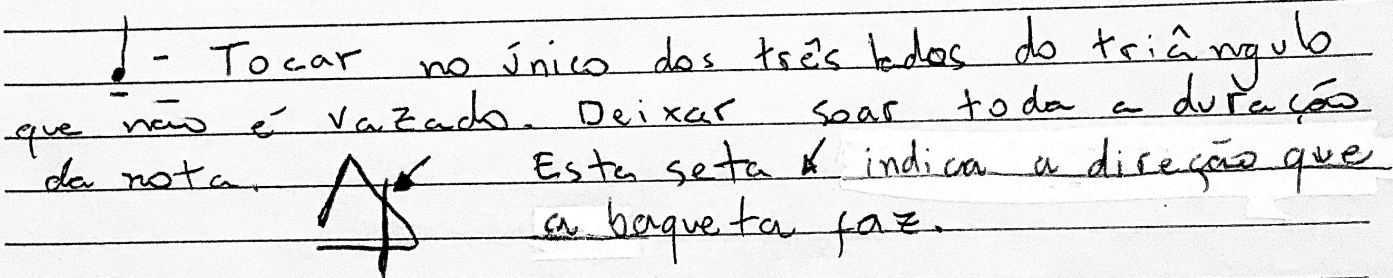 - Tocar no único dos três lados do triângulo
que não é vazado. Deixar soar toda a duração
da nota. Esta seta indica a direção que
a baqueta faz.